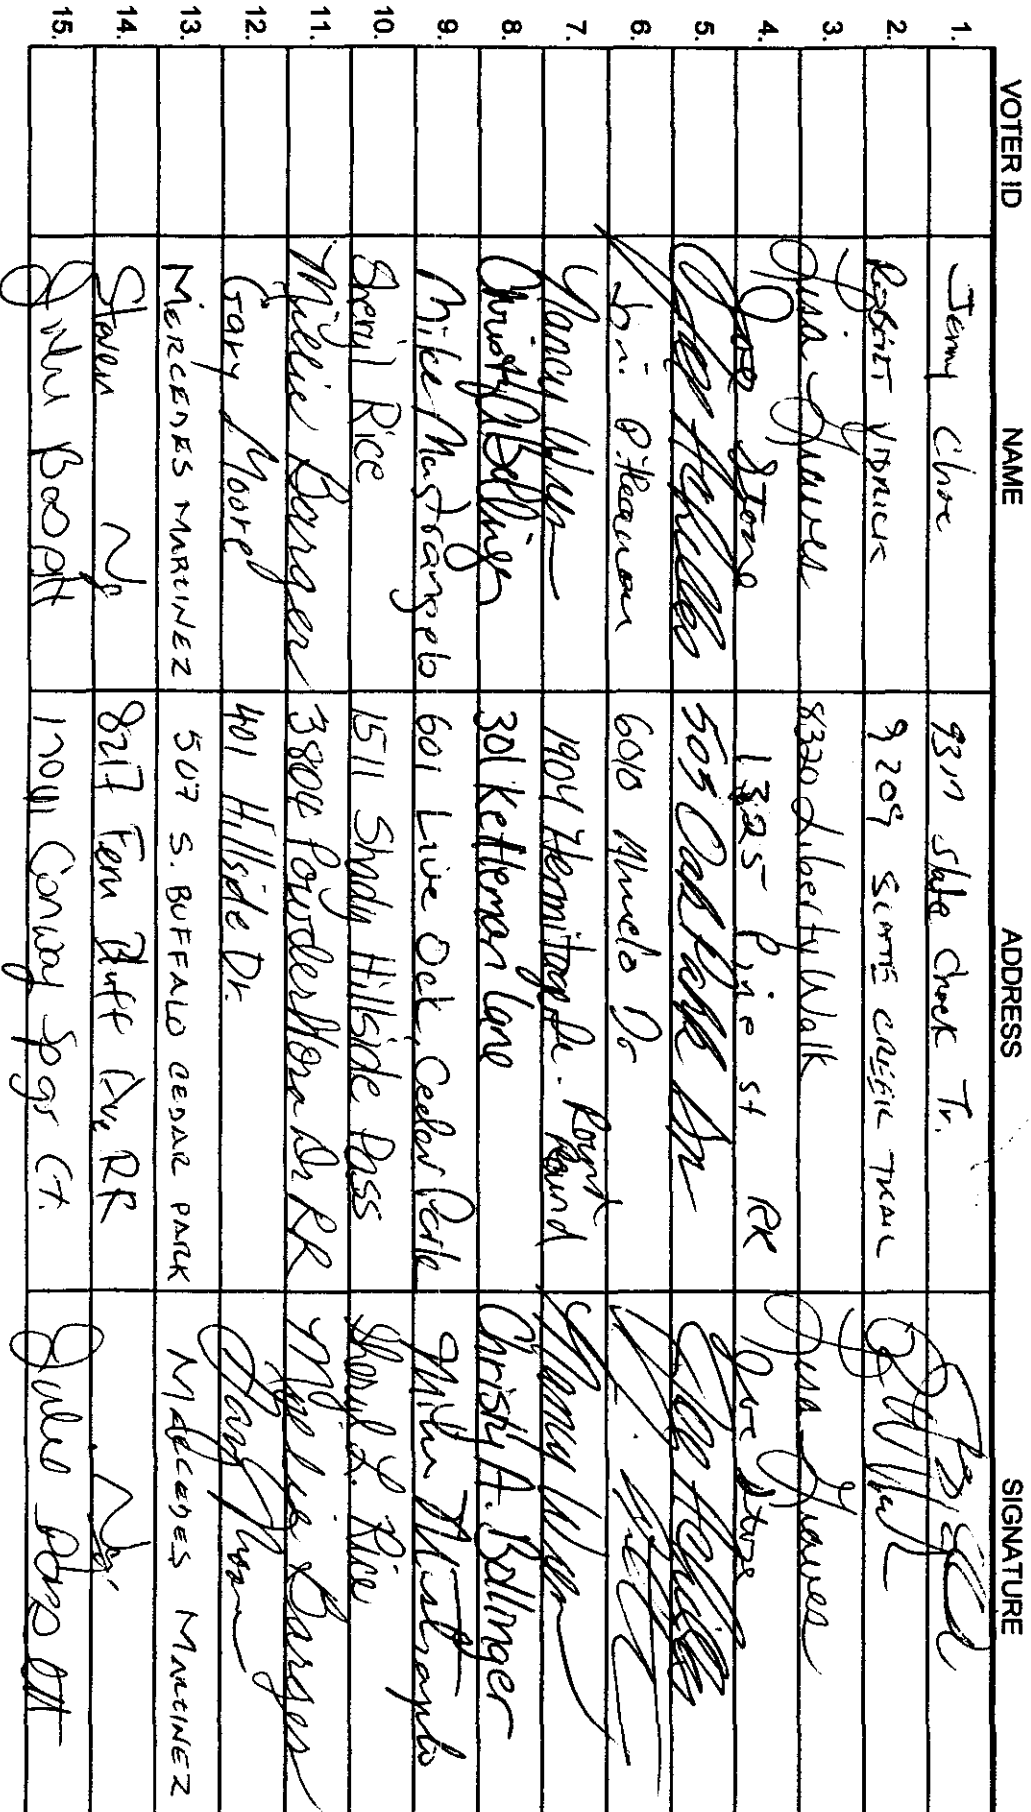 VOTER ID NAME ADDRESS SIGNATURE
1. Jenny Choe 9317 Slate Creek Tr.
2. Robert Vidrick 9209 SLATE CREEK TRAIL
3. Gina Graves 8320 Liberty Walk Gina Graves
4. Joe Stone 1325 Pine st RR Joe Stone
5. 505 Oak Park Dr
6. Lori 6010 Dr
7. Nancy 1904 Hermitage Dr. Round Rock Nancy
8. Christy A Bollinger 301 Kettleman Lane Christy A. Bollinger
9. Mike Mastrangelo 601 Live Oak, Cedar Park Mike Mastrangelo
10. Sheryl Rice 1511 Shady Hillside Pass Sheryl L. Rice
11. Millie Barger 3804 Powderhorn Dr RR Millie Barger
12. Gary Moore 401 Hillside Dr. Gary Moore
13. MERCEDES MARTINEZ 507 S. BUFFALO CEDAR PARK MERCEDES MARTINEZ
14. Steven 8217 Fern Bluff Ave RR
15. Julu 17011 Conway Spgs Ct.